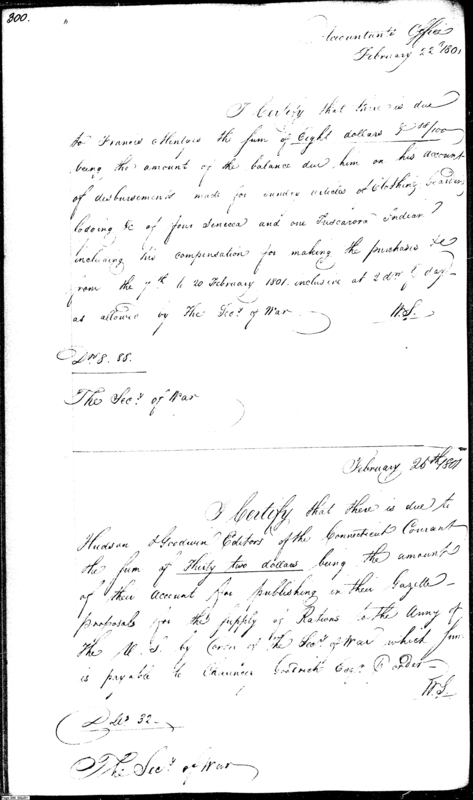 300.
Accountants Office
February 22d 1801
I Certify that there is due
to Francis Mentges the sum of Eight dollars & 88/100
being the amount of the balance due him on his account
of disbursements made for sundry articles of Clothing, boarding,
lodging &c of four Seneca and one Tuscarora Indian
including his compensation for making the purchases &c
from the 7th to 20 February 1801. inclusive at 2 drs day
as allowed by The Secy of War
W.S.
Drs 8. 88.
The Secy of War
February 26th 1801
I Certify that there is due to
Hudson & Goodwin Editors of the Connecticut Courant
the sum of Thirty two dollars being the amount
of their account for publishing in their Gazette
proposals for the supply of Rations to the Army of
the U. S. by order of The Secy of War which sum
is payable to Chauncey Goodrich Esqr or order
W.S.
Dolrs 32.
The Secy of War